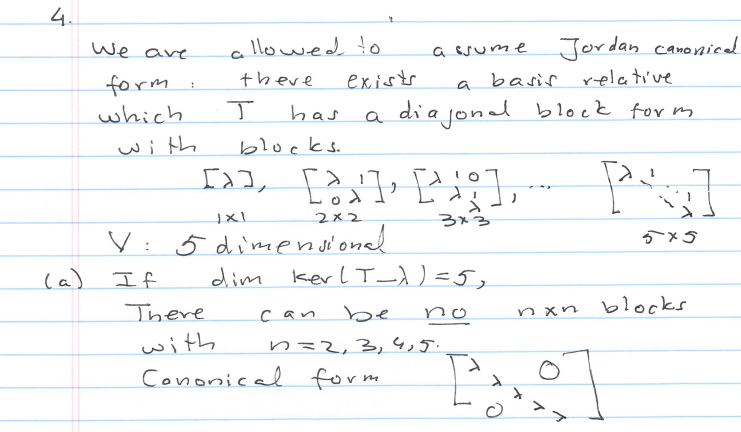 4.
We are allowed to assume Jordan canonical
form : there exists a basis relative
which T has a diagonal block form
with blocks.
[λ], [λ 1 0 λ], [λ 1 0 λ 1 λ], ... [λ 1 ⋱ ⋱ 1 λ]
1x1 2x2 3x3 5x5
V : 5 dimensional
(a) If dim ker(T-λ)=5,
There can be no nxn blocks
with n=2,3,4,5.
Canonical form [λ λ λ λ λ 0 0]